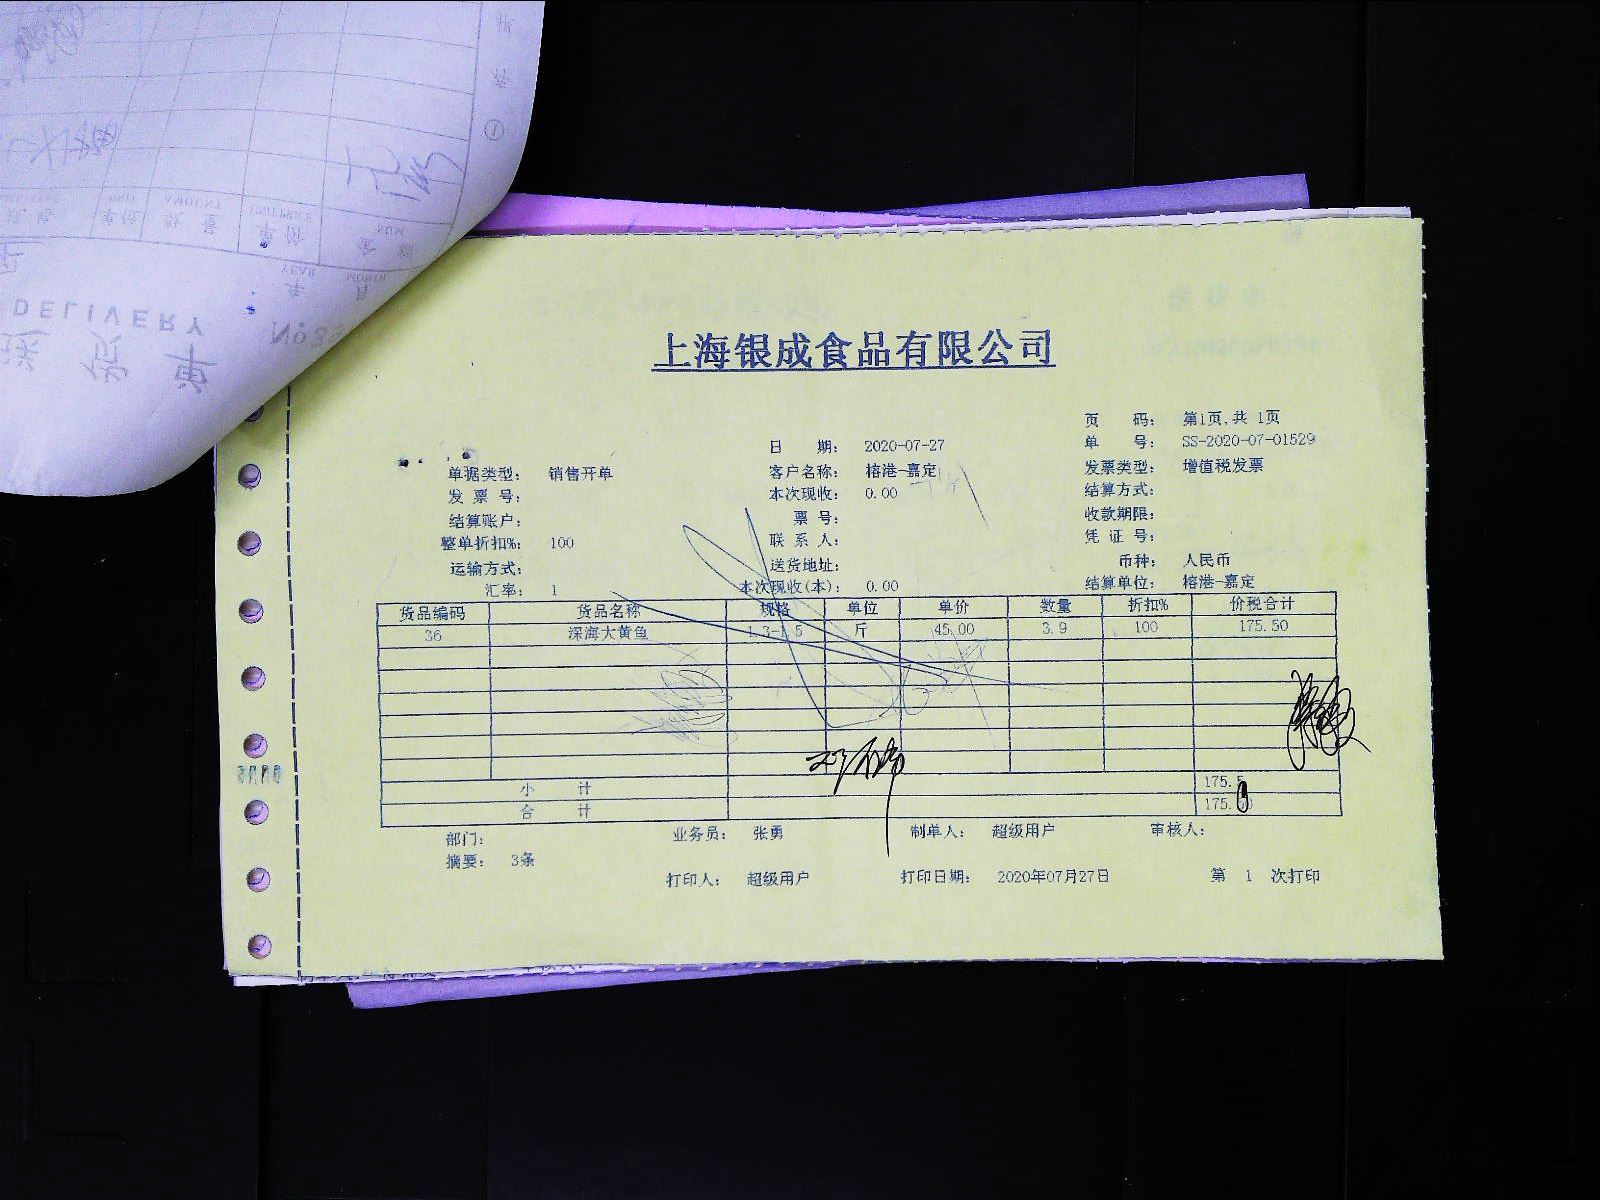 DELIVERY
上海银成食品有限公司
页 码： 第1页,共 1页
日 期： 2020-07-27 单 号： SS-2020-07-01529
单据类型： 销售开单 客户名称： 榕港-嘉定 发票类型： 增值税发票
发 票 号： 本次现收： 0.00 结算方式：
结算账户： 票 号： 收款期限：
整单折扣%： 100 联 系 人： 凭 证 号：
运输方式： 送货地址： 币种： 人民币
汇率： 1 本次现收(本)： 0.00 结算单位： 榕港-嘉定
货品编码 货品名称 规格 单位 单价 数量 折扣% 价税合计
36 深海大黄鱼 1.3-1.5 斤 45.00 3.9 100 175.50
小 计 175.5
合 计 175.
部门： 业务员： 张勇 制单人： 超级用户 审核人：
摘要： 3条
打印人： 超级用户 打印日期： 2020年07月27日 第 1 次打印